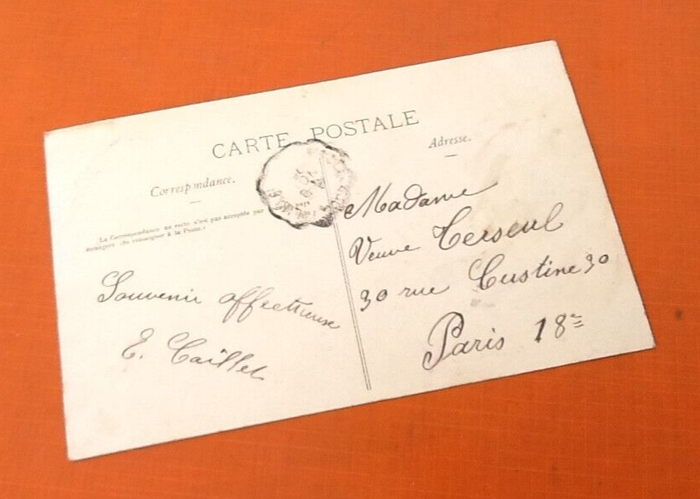 CARTE POSTALE
Correspondance.
Adresse.
La Correspondance au recto n'est pas acceptée par
étrangers (Se renseigner à la Poste.)
Souvenir affectueuse
E. Caillet
Madame
Veuve Terseul
30 rue Custine 30
Paris 18e